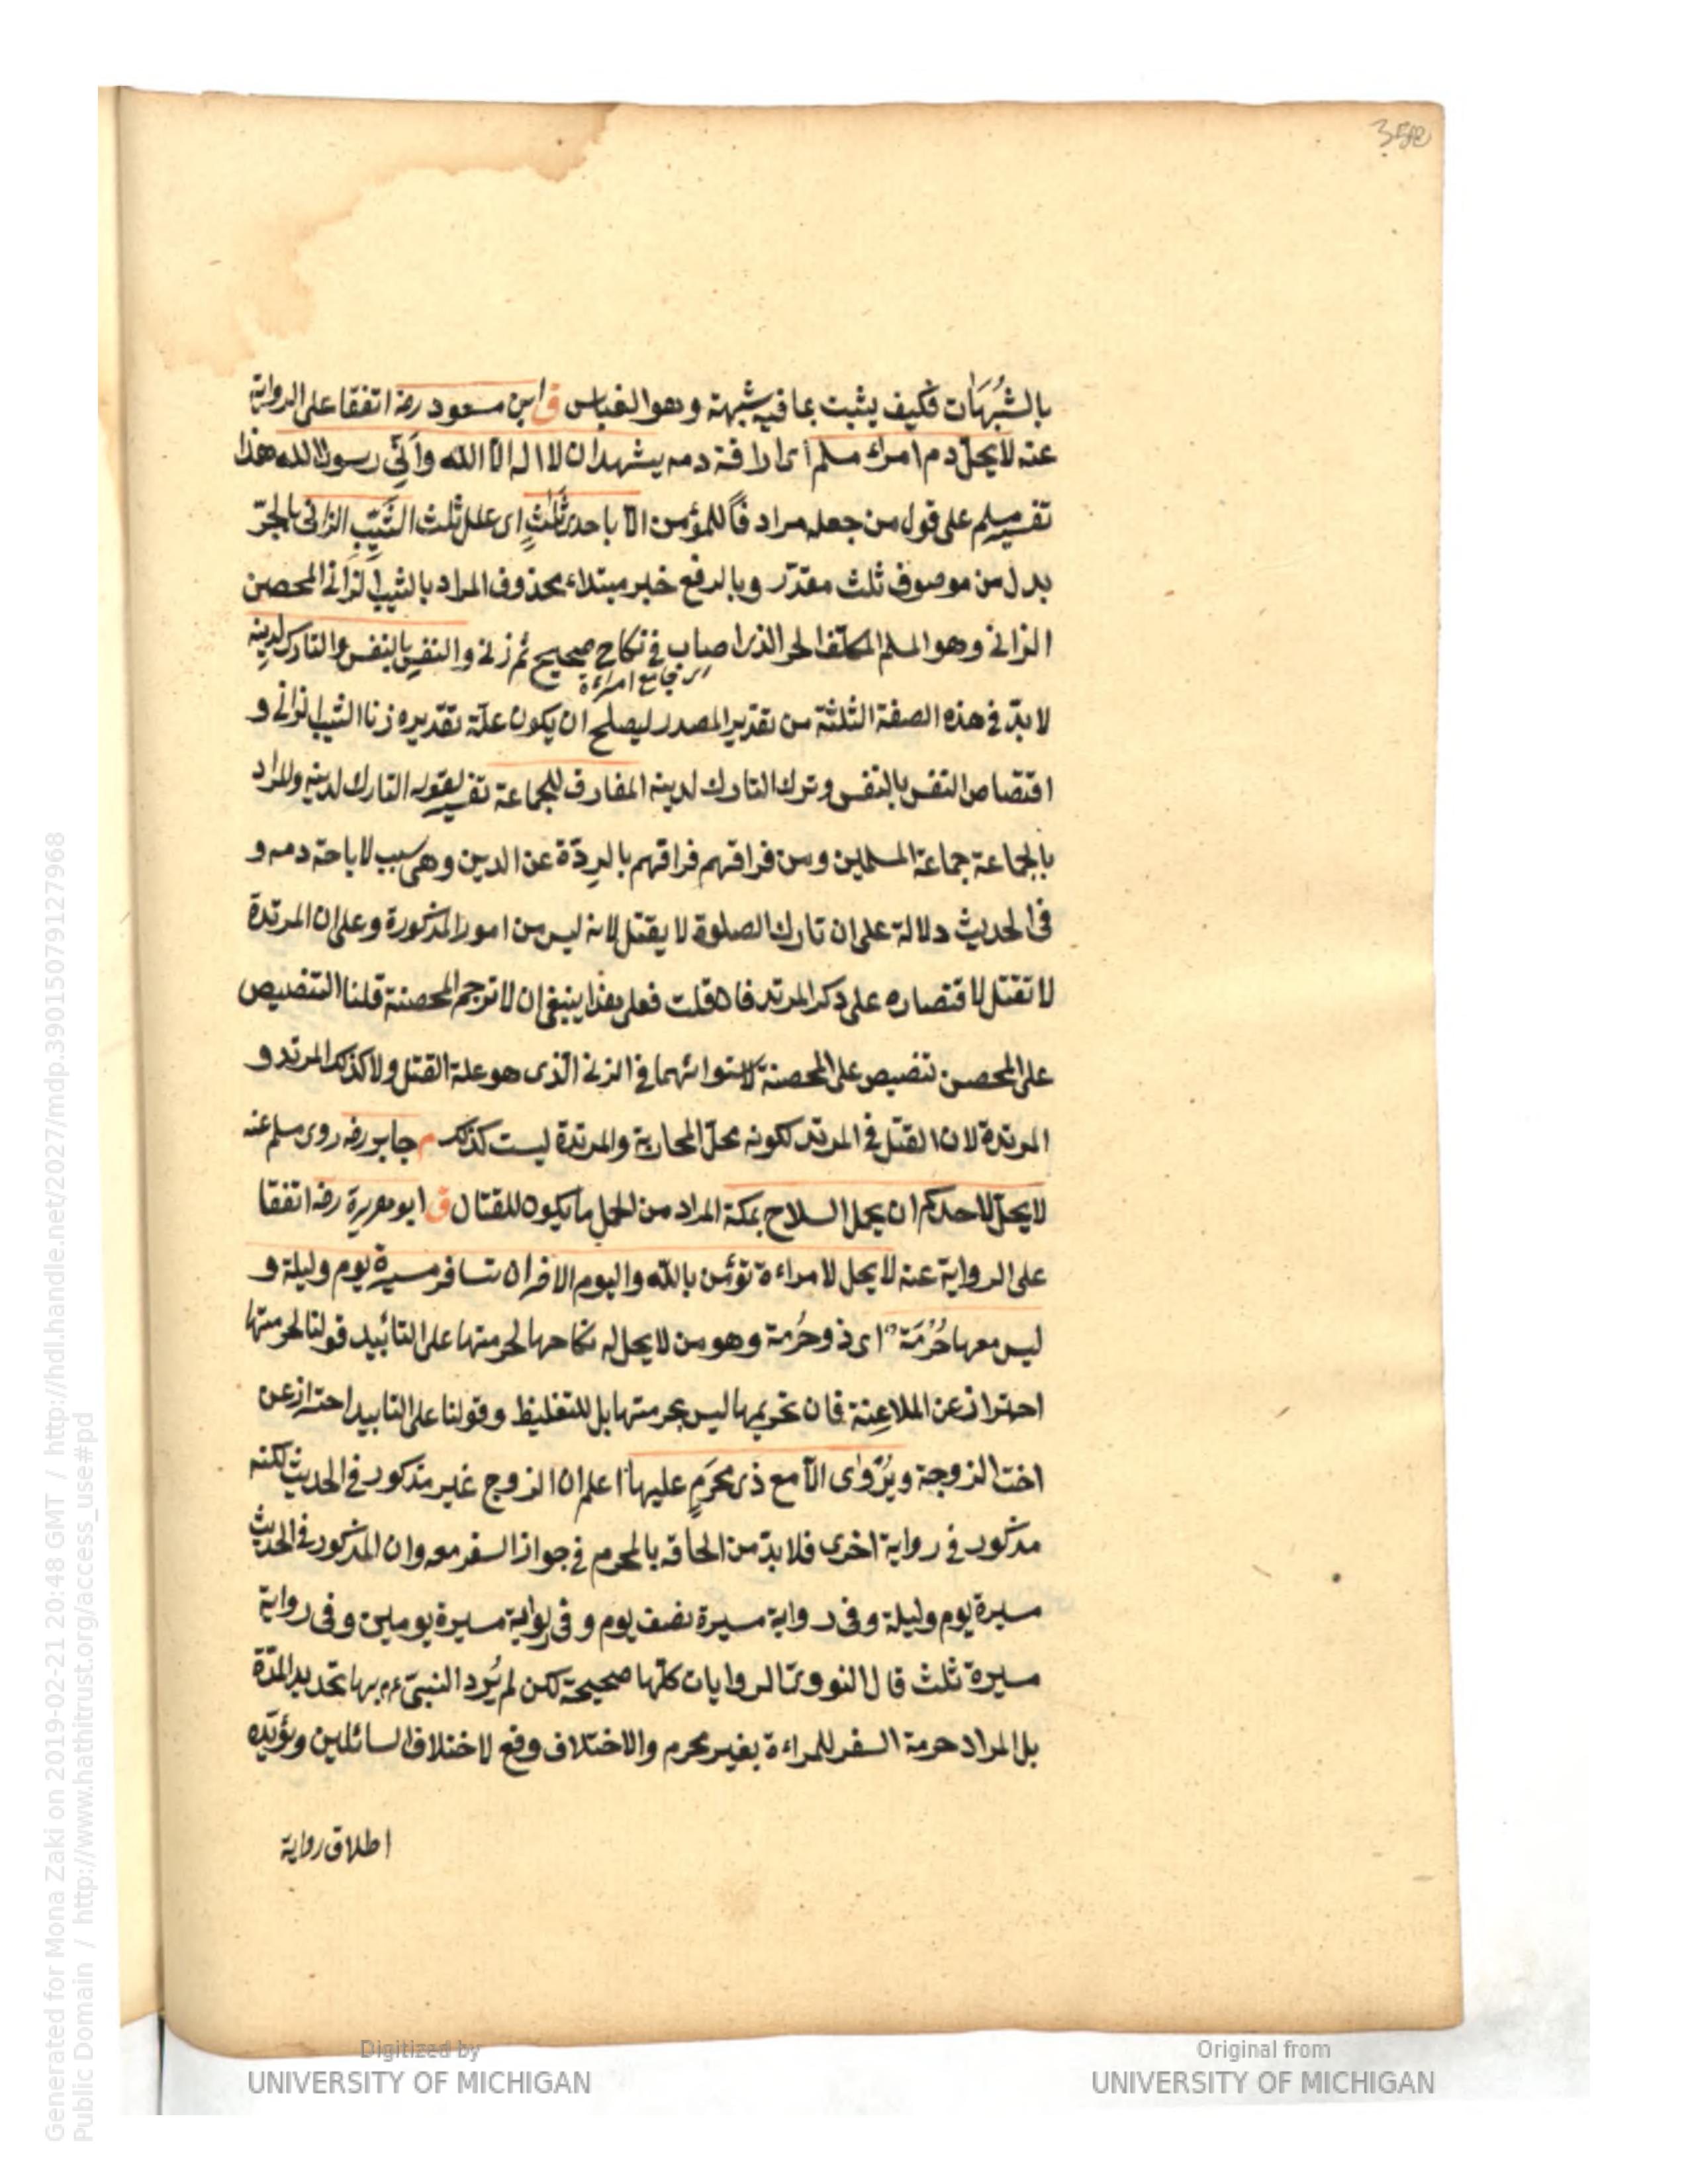 358
بالشُبُهَات فكيف يثبت بما فيه شبهة وهو القياس ق ابن مسعود رضه اتفقا على الرواية
عنه لا يحلّ دم امرئ مسلم اى اراقة دمه يشهد ان لا اله الا الله وأنّى رسول الله هذا
تفسير مسلم على قول من جعله مرادفًا للمؤمن الا باحدى ثلثٍ اى علل ثلث الثَيّبِ الزانى بالجرّ
بدل من موصوف ثلث مقدّر وبالرفع خبر مبتداء محذوف المراد بالثيب الزانى المحصن
الزانى وهو المسلم المكلّف الحر الذى اصاب فى نكاح صحيح ثم زنى والنفس بالنفس والتارك لدينه
اى جامع امراءة
لا بدّ فى هذه الصفة الثلثة من تقدير المصدر ليصلح ان يكون علّة تقديره زنا الثيب الزانى و
اقتصاص النفس بالنفس وترك التارك لدينه المفارق للجماعة تفسير لقوله التارك لدينه والمراد
بالجماعة جماعة المسلمين ومن فراقتهم فراقهم بالردّة عن الدين وهى سبب لاباحة دمه و
فى الحديث دلالة على ان تارك الصلوة لا يقتل لانه ليس من امور المذكورة وعلى ان المرتدة
لا تقتل لاقتصاره على ذكر المرتد فان قلت فعلى هذا ينبغى ان لا ترجم المحصنة قلنا التنصيص
على المحصن تنصيص على المحصنة لاستوائهما فى الزنى الذى هو علة القتل ولا كذلك المرتد و
المرتدة لان القتل فى المرتد لكونه محلّ المحاربة والمرتدة ليست كذلك م جابر رضه روى مسلم عنه
لا يحلّ لاحدكم ان يحمل السلاح بمكة المراد من الحمل ما يكون للقتال ق ابو هريرة رضه اتفقا
على الرواية عنه لا يحل لامراءة تؤمن بالله واليوم الاخر ان تسافر مسيرة يوم وليلة و
ليس معها حُرْمَة اى ذو حُرمة وهو من لا يحل له نكاحها لحرمتها على التأبيد قولنا لحرمتها
احتراز عن الملاعِنة فان تحريمها ليس بحرمتها بل للتغليظ وقولنا على التابيد احتراز عن
اخت الزوجة ويُرْوٰى الا مع ذى محرَمٍ عليها اعلم ان الزوج غير مذكور فى الحديث لكنه
مذكور فى رواية اخرى فلا بدّ من الحاقه بالمحرم فى جواز السفر معه وان المذكور فى الحديث
مسيرة يوم وليلة وفى رواية مسيرة نصف يوم وفى رواية مسيرة يومين وفى رواية
مسيرة ثلث قال النووىّ الروايات كلّها صحيحة لكن لم يُرد النبىّ عم بها تحديد المدّة
بل المراد حرمة السفر للمراءة بغير محرم والاختلاف وقع لاختلاف السائلين ويؤيّده
اطلاق رواية
Generated for Mona Zaki on 2019-02-21 20:48 GMT / http://hdl.handle.net/2027/mdp.39015079127968
Public Domain / http://www.hathitrust.org/access_use#pd
Digitized by
UNIVERSITY OF MICHIGAN
Original from
UNIVERSITY OF MICHIGAN